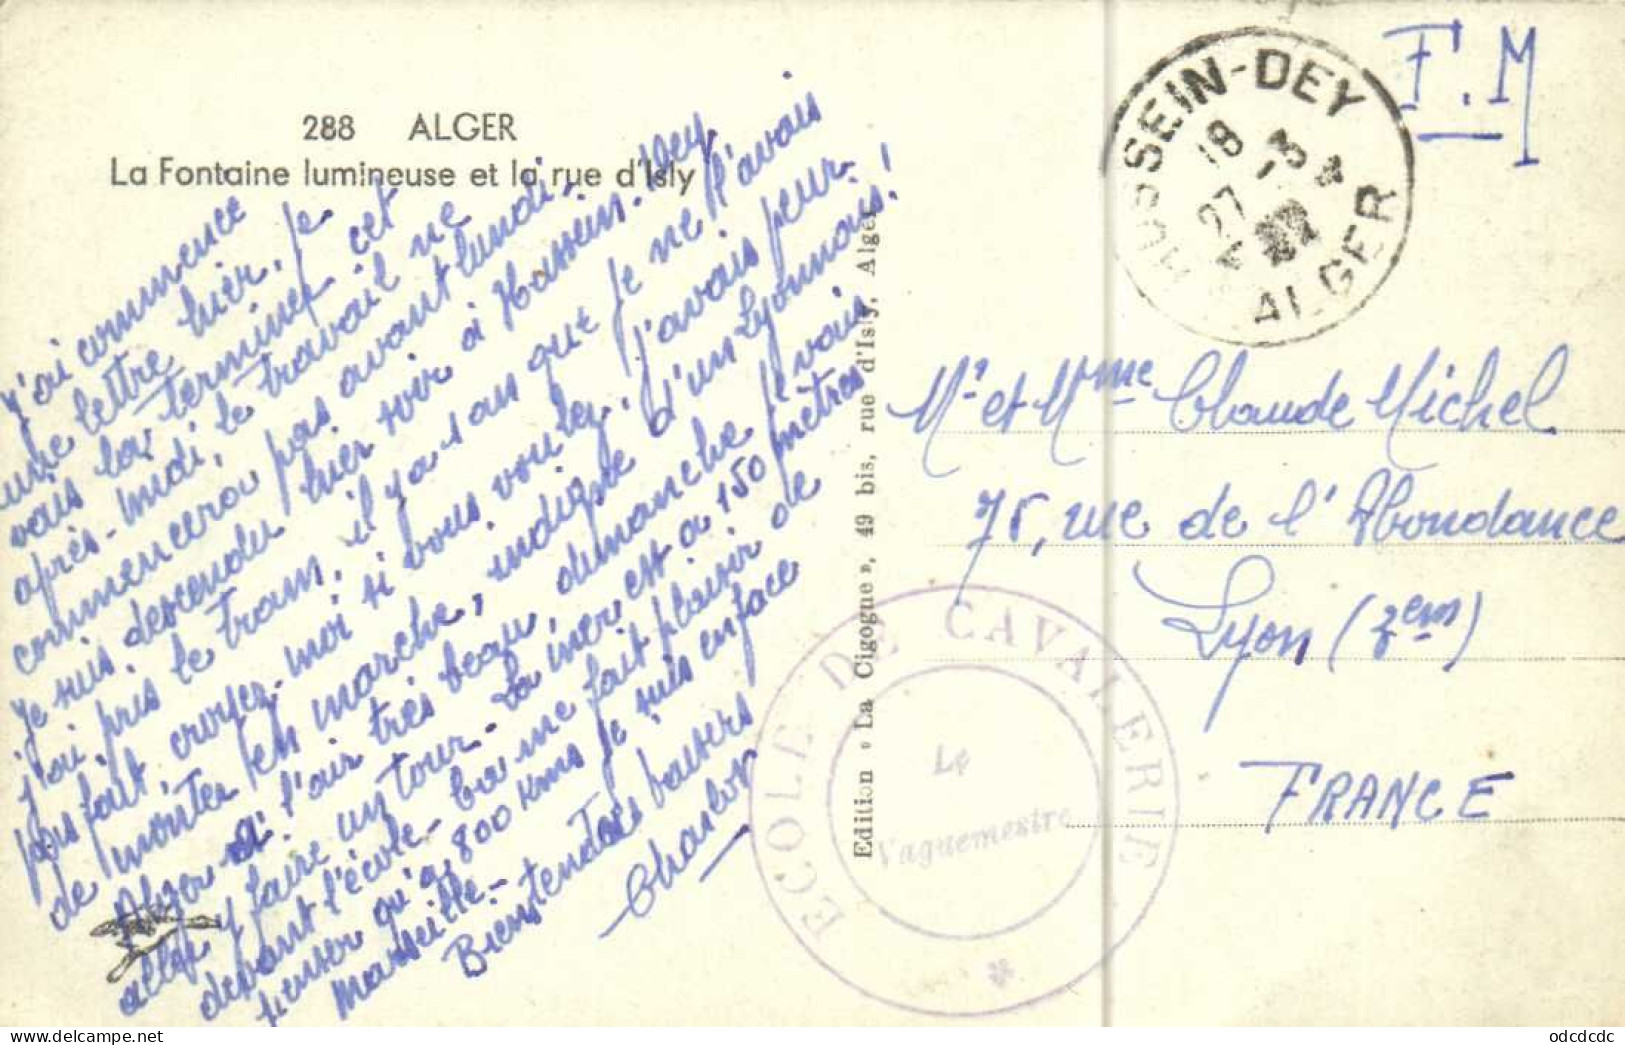 288 ALGER
La Fontaine lumineuse et la rue d'Isly
J'ai commencé
une lettre hier, je
vais la terminer cet
après-midi, le travail ne
commencera pas avant lundi.
Je suis descendu hier soir à Hussein-Dey
j'ai pris le tram, il y a 1 an que je ne l'avais
pas fait, croyez-moi si vous voulez, j'avais peur
de monter en marche, indigne d'un Lyonnais!
Alger a l'air très beau, dimanche je vais
aller y faire un tour. La mer est à 150 mètres
devant l'école - ça me fait plaisir de
penser qu'à 800 Kms je suis en face
Marseille -
Bien tendres baisers
Charlot
Edition « La Cigogne », 49 bis, rue d'Isly, Alger
F.M
HUSSEIN-DEY
18 -3
27
ALGER
Mr et Mme Claude Michel
75, rue de l'Abondance
Lyon (3em)
FRANCE
ECOLE DE CAVALERIE
Le
Vaguemestre
odcdcdc